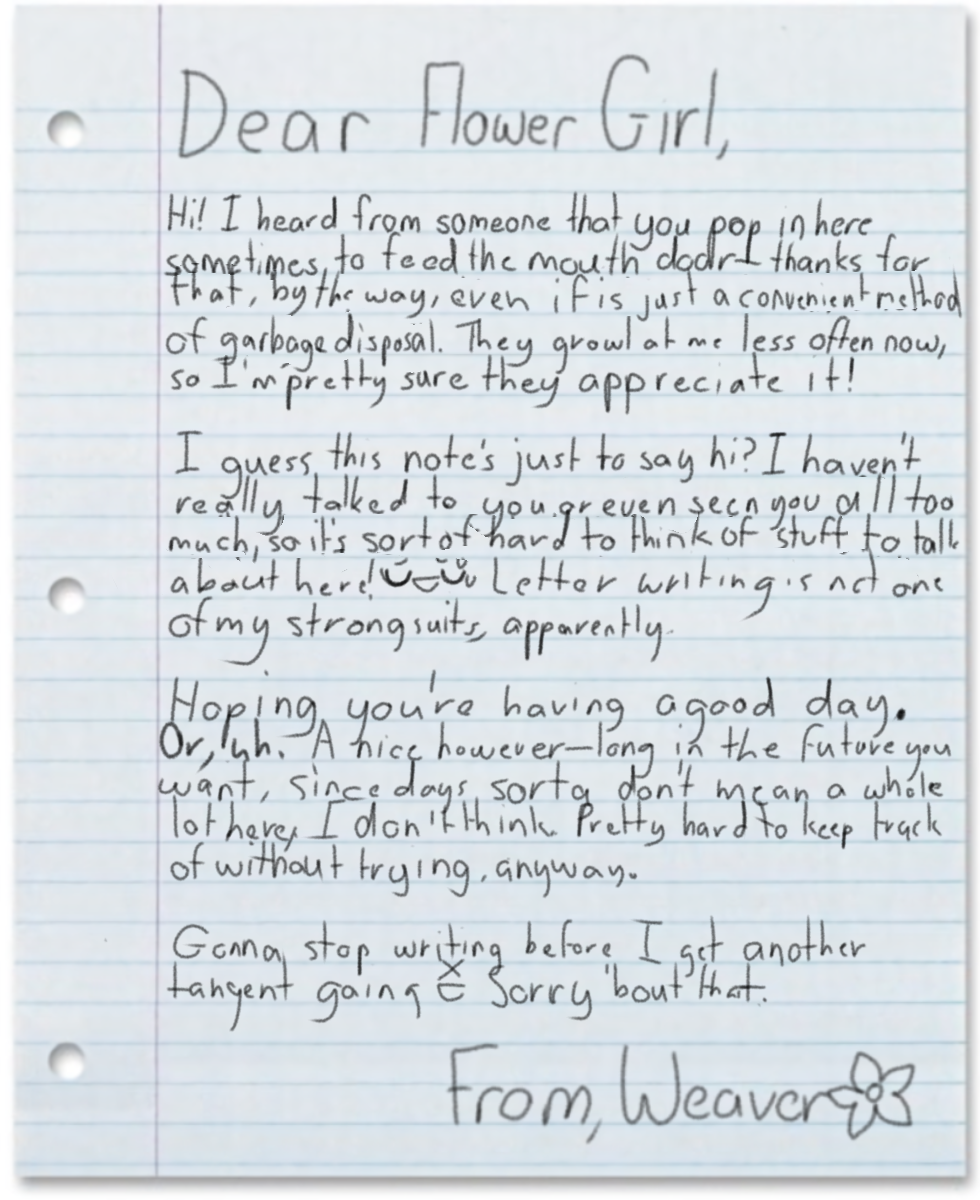 Dear Flower Girl,
Hi! I heard from someone that you pop in here
sometimes, to feed the mouth door– thanks for
that, by the way, even if is just a convenient method
of garbage disposal. They growl at me less often now,
so I'm pretty sure they appreciate it!
I guess this note's just to say hi? I haven't
really talked to you or even seen you all too
much, so it's sort of hard to think of stuff to talk
about here! Letter writing is not one
of my strong suits, apparently.
Hoping you're having a good day.
Or, uh. A nice however–long in the future you
want, since days sorta don't mean a whole
lot here, I don't think. Pretty hard to keep track
of without trying, anyway.
Gonna stop writing before I get another
tangent going Sorry 'bout that.
From, Weaver